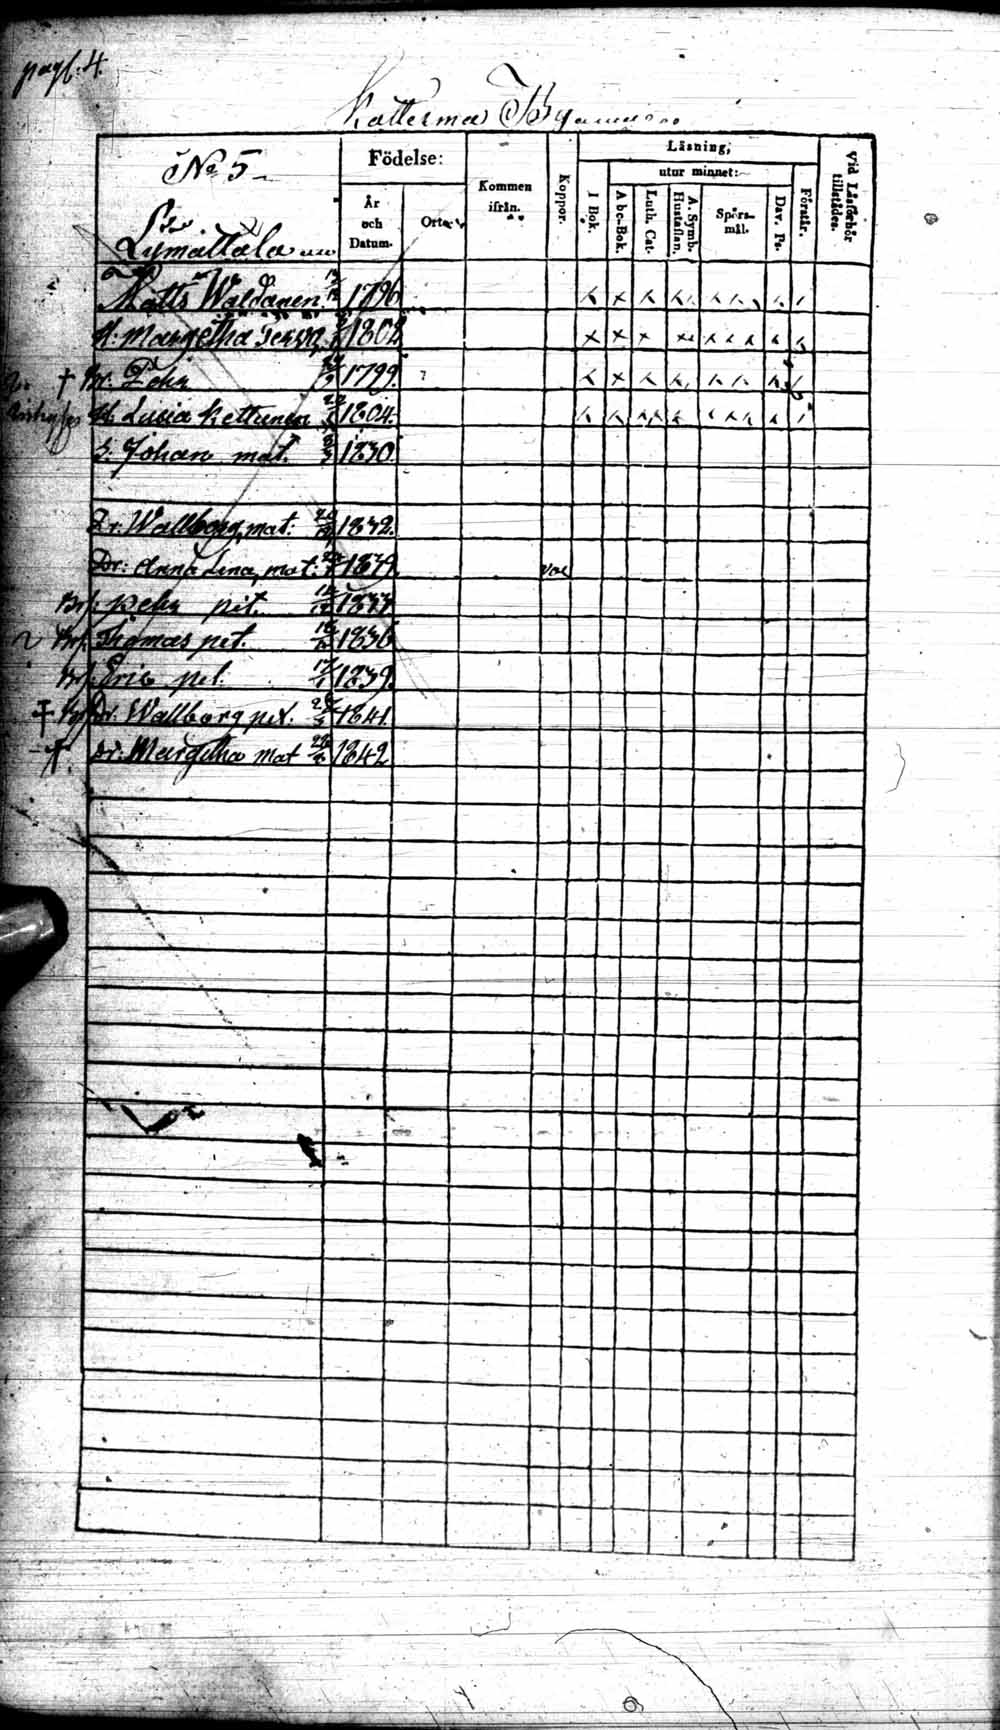 pag. 4.
Katterma By
No 5
Födelse:
År och Datum.
Ort.
Kommen ifrån.
Koppor.
Läsning,
utur minnet:
I Bok.
Abc-Bok.
Luth. Cat.
A. Symb. Hustaflan.
Spörs-mål.
Dav. Ps.
Förstår.
Vid Läsförhör tillstädes.
Lymattala
Matts Waldanen 1796
H: Margetha 1802
† Br. Pehr 1799.
H. Lisia Kettunen 1804.
S: Johan mat. 1830.
Dr: Wallborg, mat: 1832.
Dr: Anna Lena, mat: 1839. vac
Pehr pet.
Thomas pet. 1836
Eric pet. 1839.
‡ Dr. Wallborg pet. 1841.
†. Dr: Margetha mat 1842